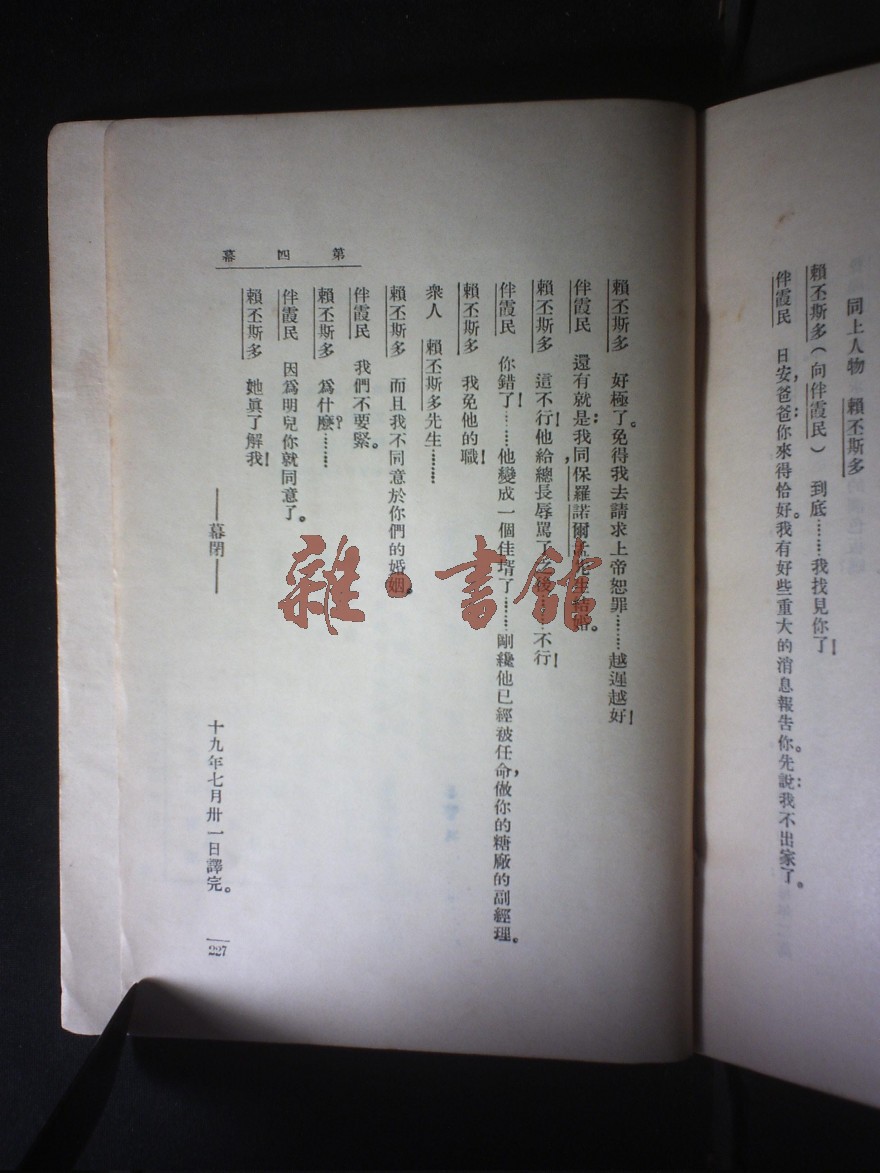 同上人物　賴丕斯多
賴丕斯多（向伴霞民）　到底……我找見你了！
伴霞民　日安，爸爸：你來得恰好。我有好些重大的消息報告你。先說：我不出家了。
賴丕斯多　好極了。免得我去請求上帝恕罪……越遲越好！
伴霞民　還有就是：我同保羅，諾爾孟先生結婚。
賴丕斯多　這不行！他給總長辱罵了之後……不行！
伴霞民　你錯了！……他變成一個佳壻了……剛纔他已經被任命，做你的糖廠的副經理。
賴丕斯多　我免他的職！
衆人　賴丕斯多先生………
賴丕斯多　而且我不同意於你們的婚姻。
伴霞民　我們不要緊。
賴丕斯多　爲什麽？……
伴霞民　因爲明兒你就同意了。
賴丕斯多　她眞了解我！
——幕閉——
十九年七月卅一日譯完。
第四幕
227
雜·書館